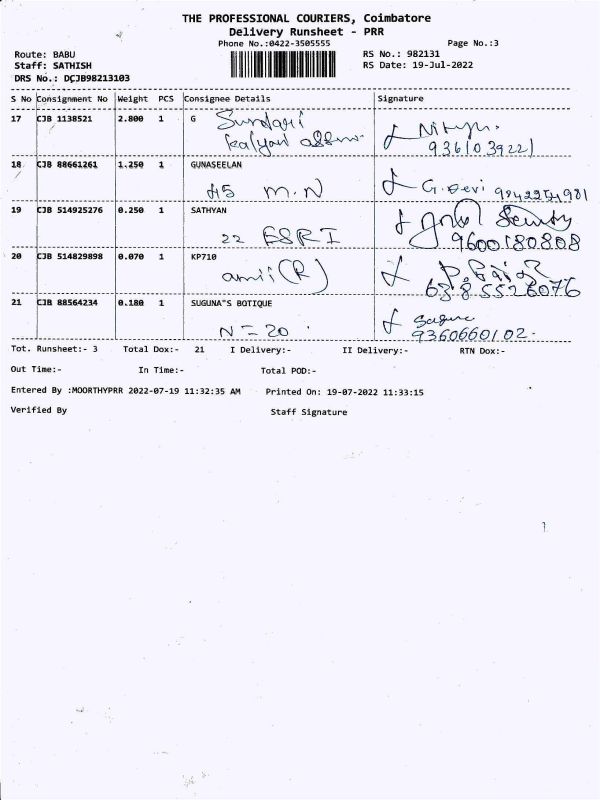 THE PROFESSIONAL COURIERS, Coimbatore
Delivery Runsheet - PRR
Phone No.:0422-3505555
Page No.:3
Route: BABU
RS No.: 982131
Staff: SATHISH
RS Date: 19-Jul-2022
DRS No.: DCJB98213103
S No Consignment No Weight PCS Consignee Details Signature
17 CJB 1138521 2.800 1 G Sundari
kalyan
9361039221
18 CJB 88661261 1.250 1 GUNASEELAN
45 M.N G. Devi
19 CJB 514925276 0.250 1 SATHYAN
22 ESRI 9600180808
20 CJB 514829898 0.070 1 KP710
(R)
21 CJB 88564234 0.180 1 SUGUNA"S BOTIQUE
N = 20 9360660102.
Tot. Runsheet:- 3 Total Dox:- 21 I Delivery:- II Delivery:- RTN Dox:-
Out Time:- In Time:- Total POD:-
Entered By :MOORTHYPRR 2022-07-19 11:32:35 AM Printed On: 19-07-2022 11:33:15
Verified By Staff Signature